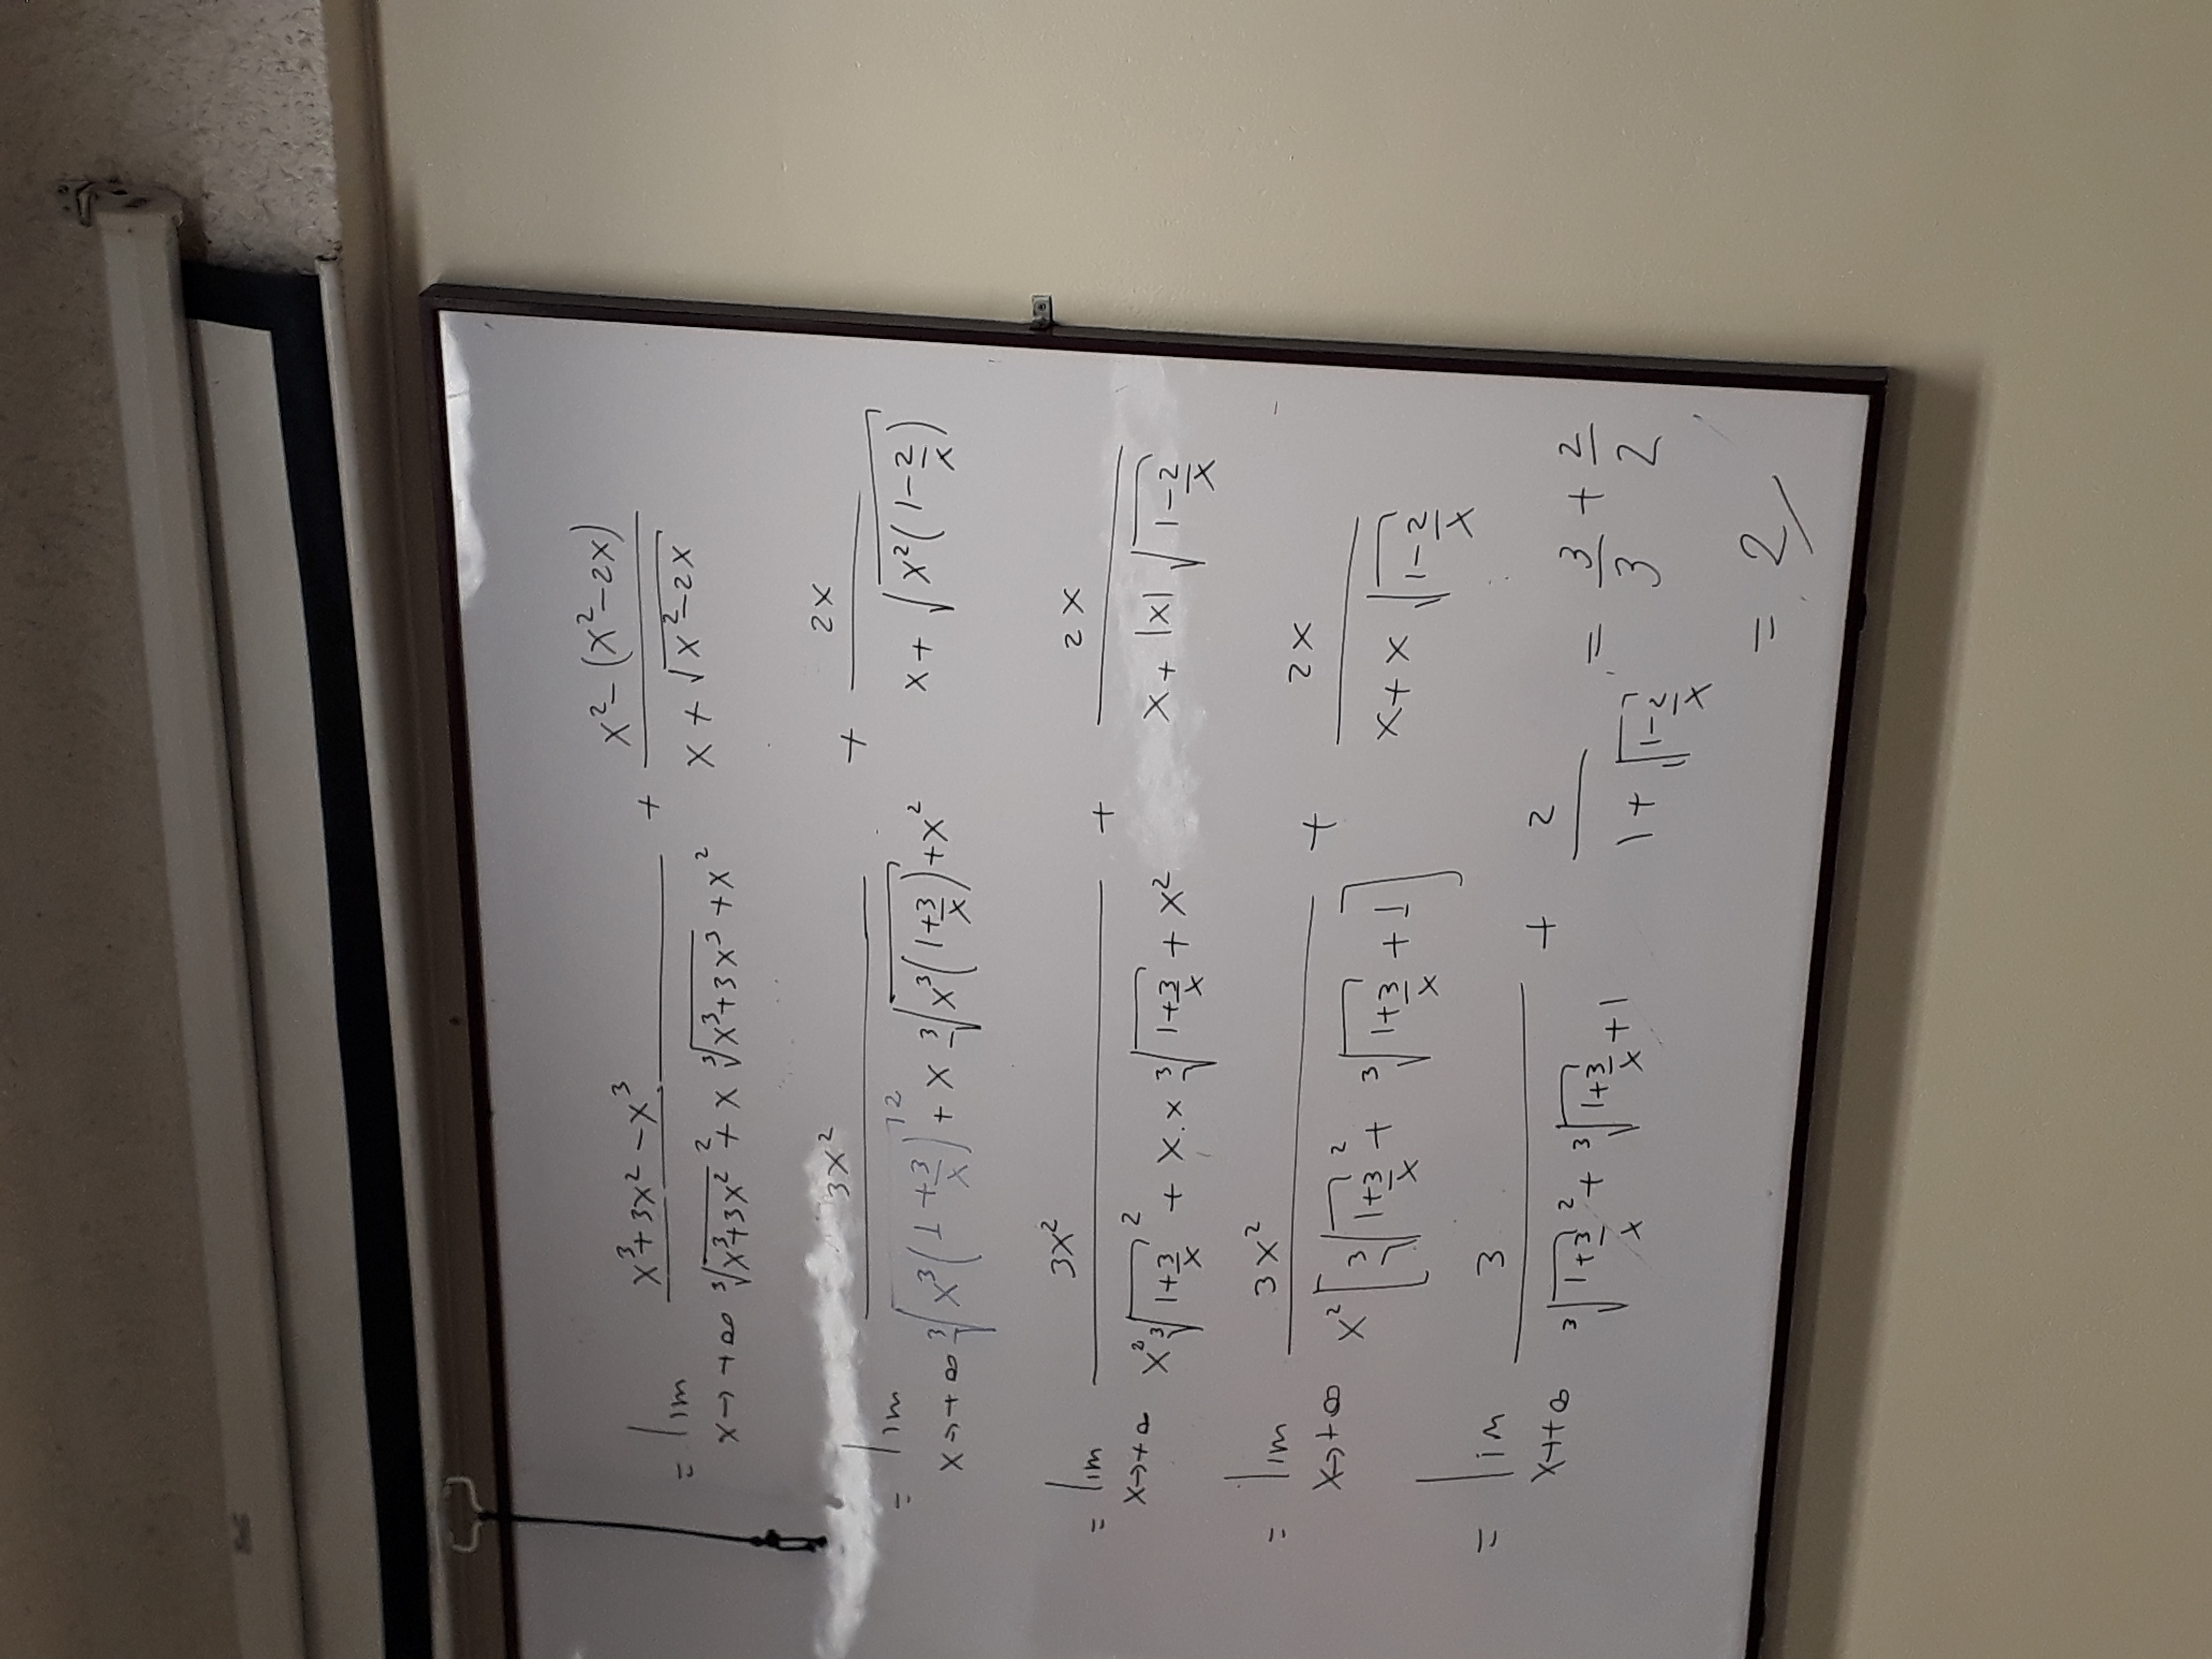 = lim x→+∞ (x³+3x²-x³)/(∛(x³+3x²)² + x ∛(x³+3x³) + x²) + (x²-(x²-2x))/(x+√(x²-2x))
= lim x→+∞ 3x²/(∛(x³(1+3/x))² + x ∛(x³(1+3/x)) + x²) + 2x/(x+√(x²(1-2/x)))
= lim x→+∞ 3x²/(x² ∛(1+3/x)² + x.x ∛(1+3/x) + x²) + 2x/(x+|x|√(1-2/x))
= lim x→+∞ 3x²/(x²[∛(1+3/x)² + ∛(1+3/x) + 1]) + 2x/(x+x√(1-2/x))
= lim x→+∞ 3/(∛(1+3/x)² + ∛(1+3/x) + 1) + 2/(1+√(1-2/x)) = 3/3 + 2/2
= 2